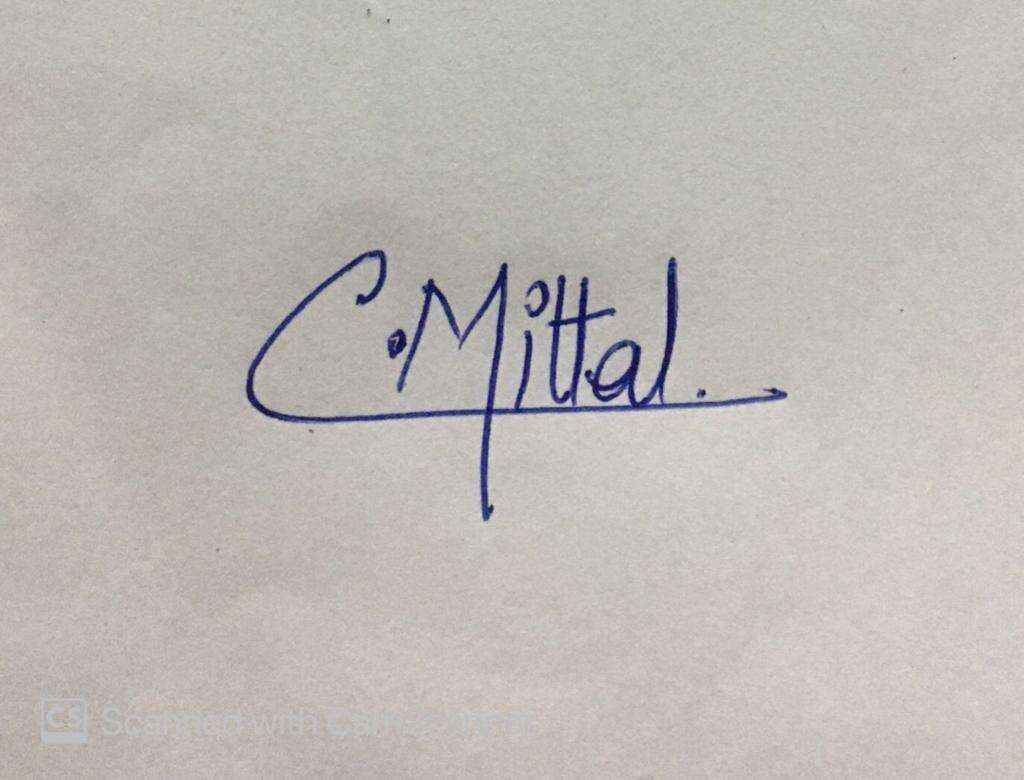 C. Mittal.
CS Scanned with CamScanner